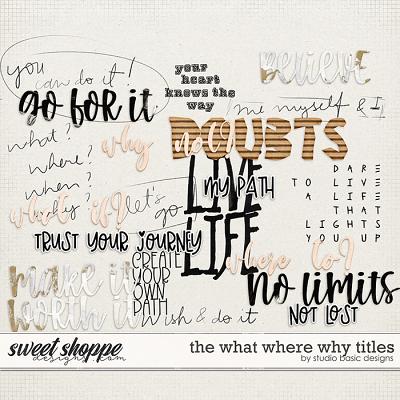 you
can do it!
go for it
your
heart
knows the
way
believe
me myself & I
what?
where?
when?
why
why
what if?
no!
DOUBTS
LIVE
MY PATH
LIFE
let's
go
DARE
TO LIVE
A LIFE
THAT
LIGHTS
YOU UP
TRUST YOUR JOURNEY
where to?
make it
worth it
CREATE
YOUR
OWN
PATH
Wish & do it
no limits
NOT LOST
sweet shoppe
designs.com
the what where why titles
by studio basic designs